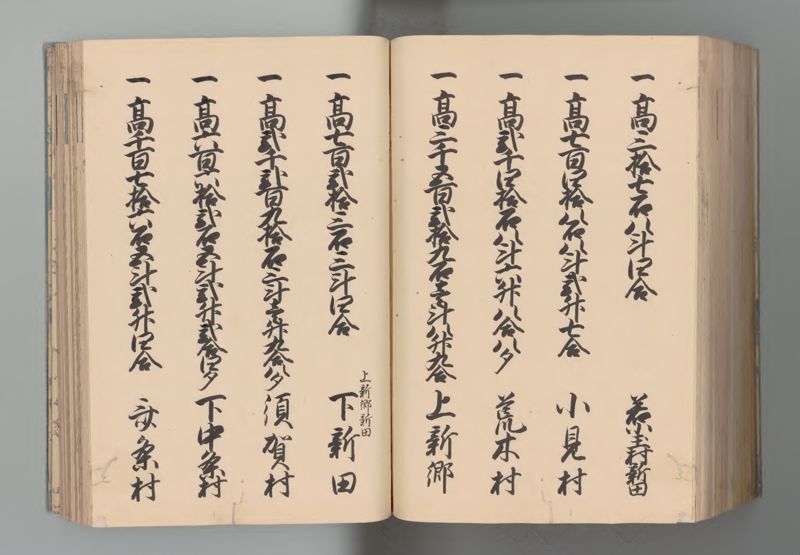 一 高三拾七石八斗四合 若小玉村新田
一 高七百四拾八石八斗弐升七合 小見村
一 高弐千四拾石八斗六升八合八夕 荒木村
一 高二千五百弐拾九石壱斗八升九合 上新郷
一 高七百弐拾三石三斗四合 上新郷新田 下新田
一 高弐千弐百九拾石三斗壱升九合八夕 須賀村
一 高六百八拾弐石五斗弐升弐合四夕 下中条村
一 高千百七拾六石五斗弐升四合 条村